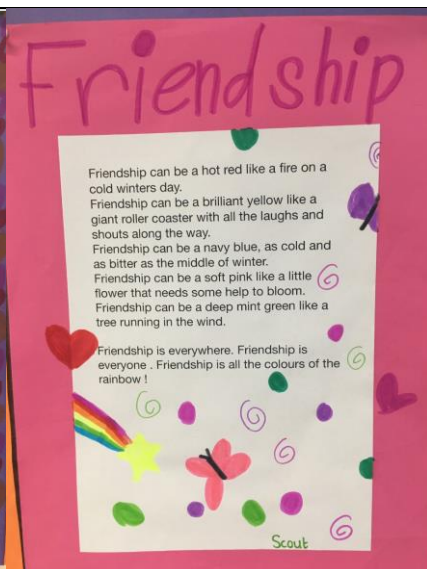 Friendship
Friendship can be a hot red like a fire on a
cold winters day.
Friendship can be a brilliant yellow like a
giant roller coaster with all the laughs and
shouts along the way.
Friendship can be a navy blue, as cold and
as bitter as the middle of winter.
Friendship can be a soft pink like a little
flower that needs some help to bloom.
Friendship can be a deep mint green like a
tree running in the wind.
Friendship is everywhere. Friendship is
everyone . Friendship is all the colours of the
rainbow !
Scout